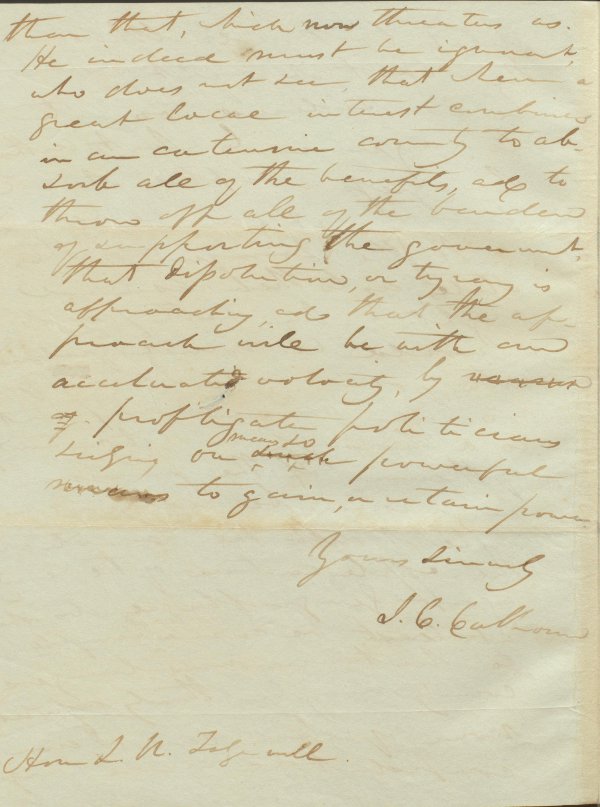 than that, which now threatens us.
He indeed must be ignorant,
who does not see, that when a
great local interest combines
in an extensive country to ab-
sorb all of the benefits, and to
throw off all of the burdens
of supporting the government,
that dissolution, or tyrany is
approaching, and that the ap-
proach will be with an
accelerated velocity, by means
of profligate politicians
means so
seizing on such powerful
means to gain, or retain power.
Yours sincerely
J. C. Calhoun
Hon L. W. Tazewell